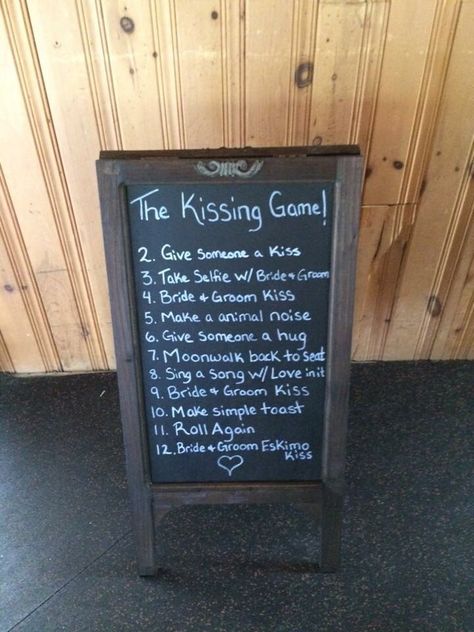 The Kissing Game!
2. Give Someone a Kiss
3. Take Selfie w/ Bride & Groom
4. Bride & Groom Kiss
5. Make a animal noise
6. Give Someone a hug
7. Moonwalk back to seat
8. Sing a song w/ Love in it
9. Bride & Groom Kiss
10. Make simple toast
11. Roll Again
12. Bride & Groom Eskimo
Kiss